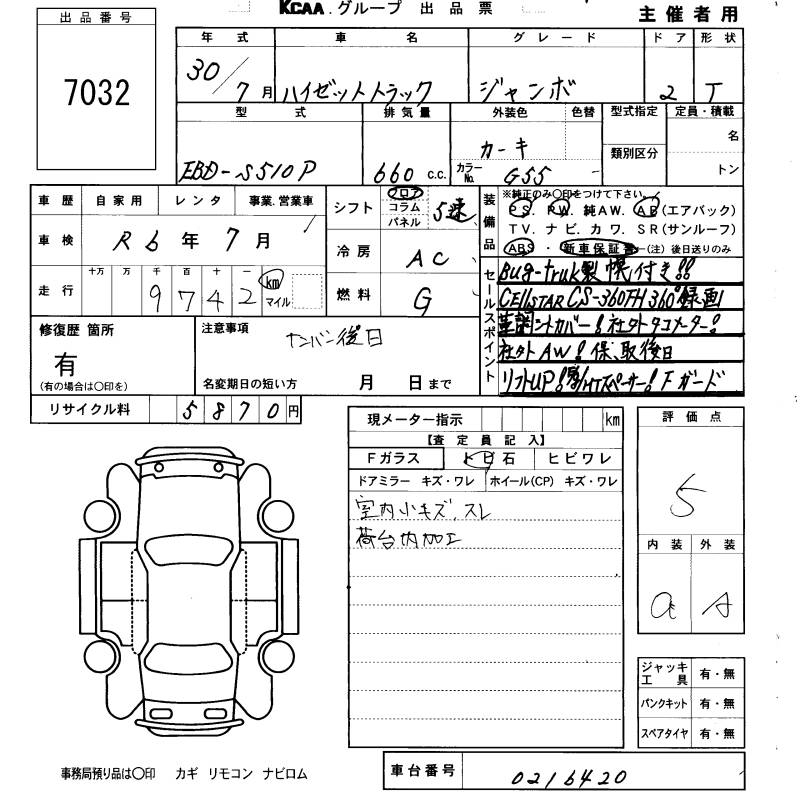 KCAA.グループ 出品票
主催者用
出品番号
7032
年式 車名 グレード ドア 形状
30/7月 ハイゼットトラック ジャンボ 2 T
型式 排気量 外装色 色替 型式指定 定員・積載
EBD-S510P 660 c.c. カーキ 類別区分 名
カラーNo. G55 トン
車歴 自家用 レンタ 事業.営業車
シフト フロア コラム パネル 5速
車検 R6年7月
冷房 AC
走行 十万 万 千 百 十 一
9742 km マイル
燃料 G
装備品 ※純正のみ○印をつけて下さい。
PS. PW. 純AW. AB(エアバック)
TV. ナビ. カワ. SR(サンルーフ)
ABS・新車保証書―(注)後日送りのみ
セールスポイント
Bug-truk製 幌付き!!
CELLSTAR CS-360FH 360°録画
革調シートカバー! 社外タコメーター!
社外AW! 保、取後日
リフトUP! スペーサー! Fガード
修復歴 箇所
有
(有の場合は○印を)
注意事項
ナンバン後日
名変期日の短い方 月 日まで
リサイクル料 5870円
現メーター指示 km
【査定員記入】
Fガラス トビ石 ヒビワレ
ドアミラー キズ・ワレ ホイール(CP) キズ・ワレ
室内小キズ、スレ
荷台内加工
評価点
5
内装 外装
a A
ジャッキ工具 有・無
パンクキット 有・無
スペアタイヤ 有・無
事務局預り品は○印 カギ リモコン ナビロム
車台番号 0216420